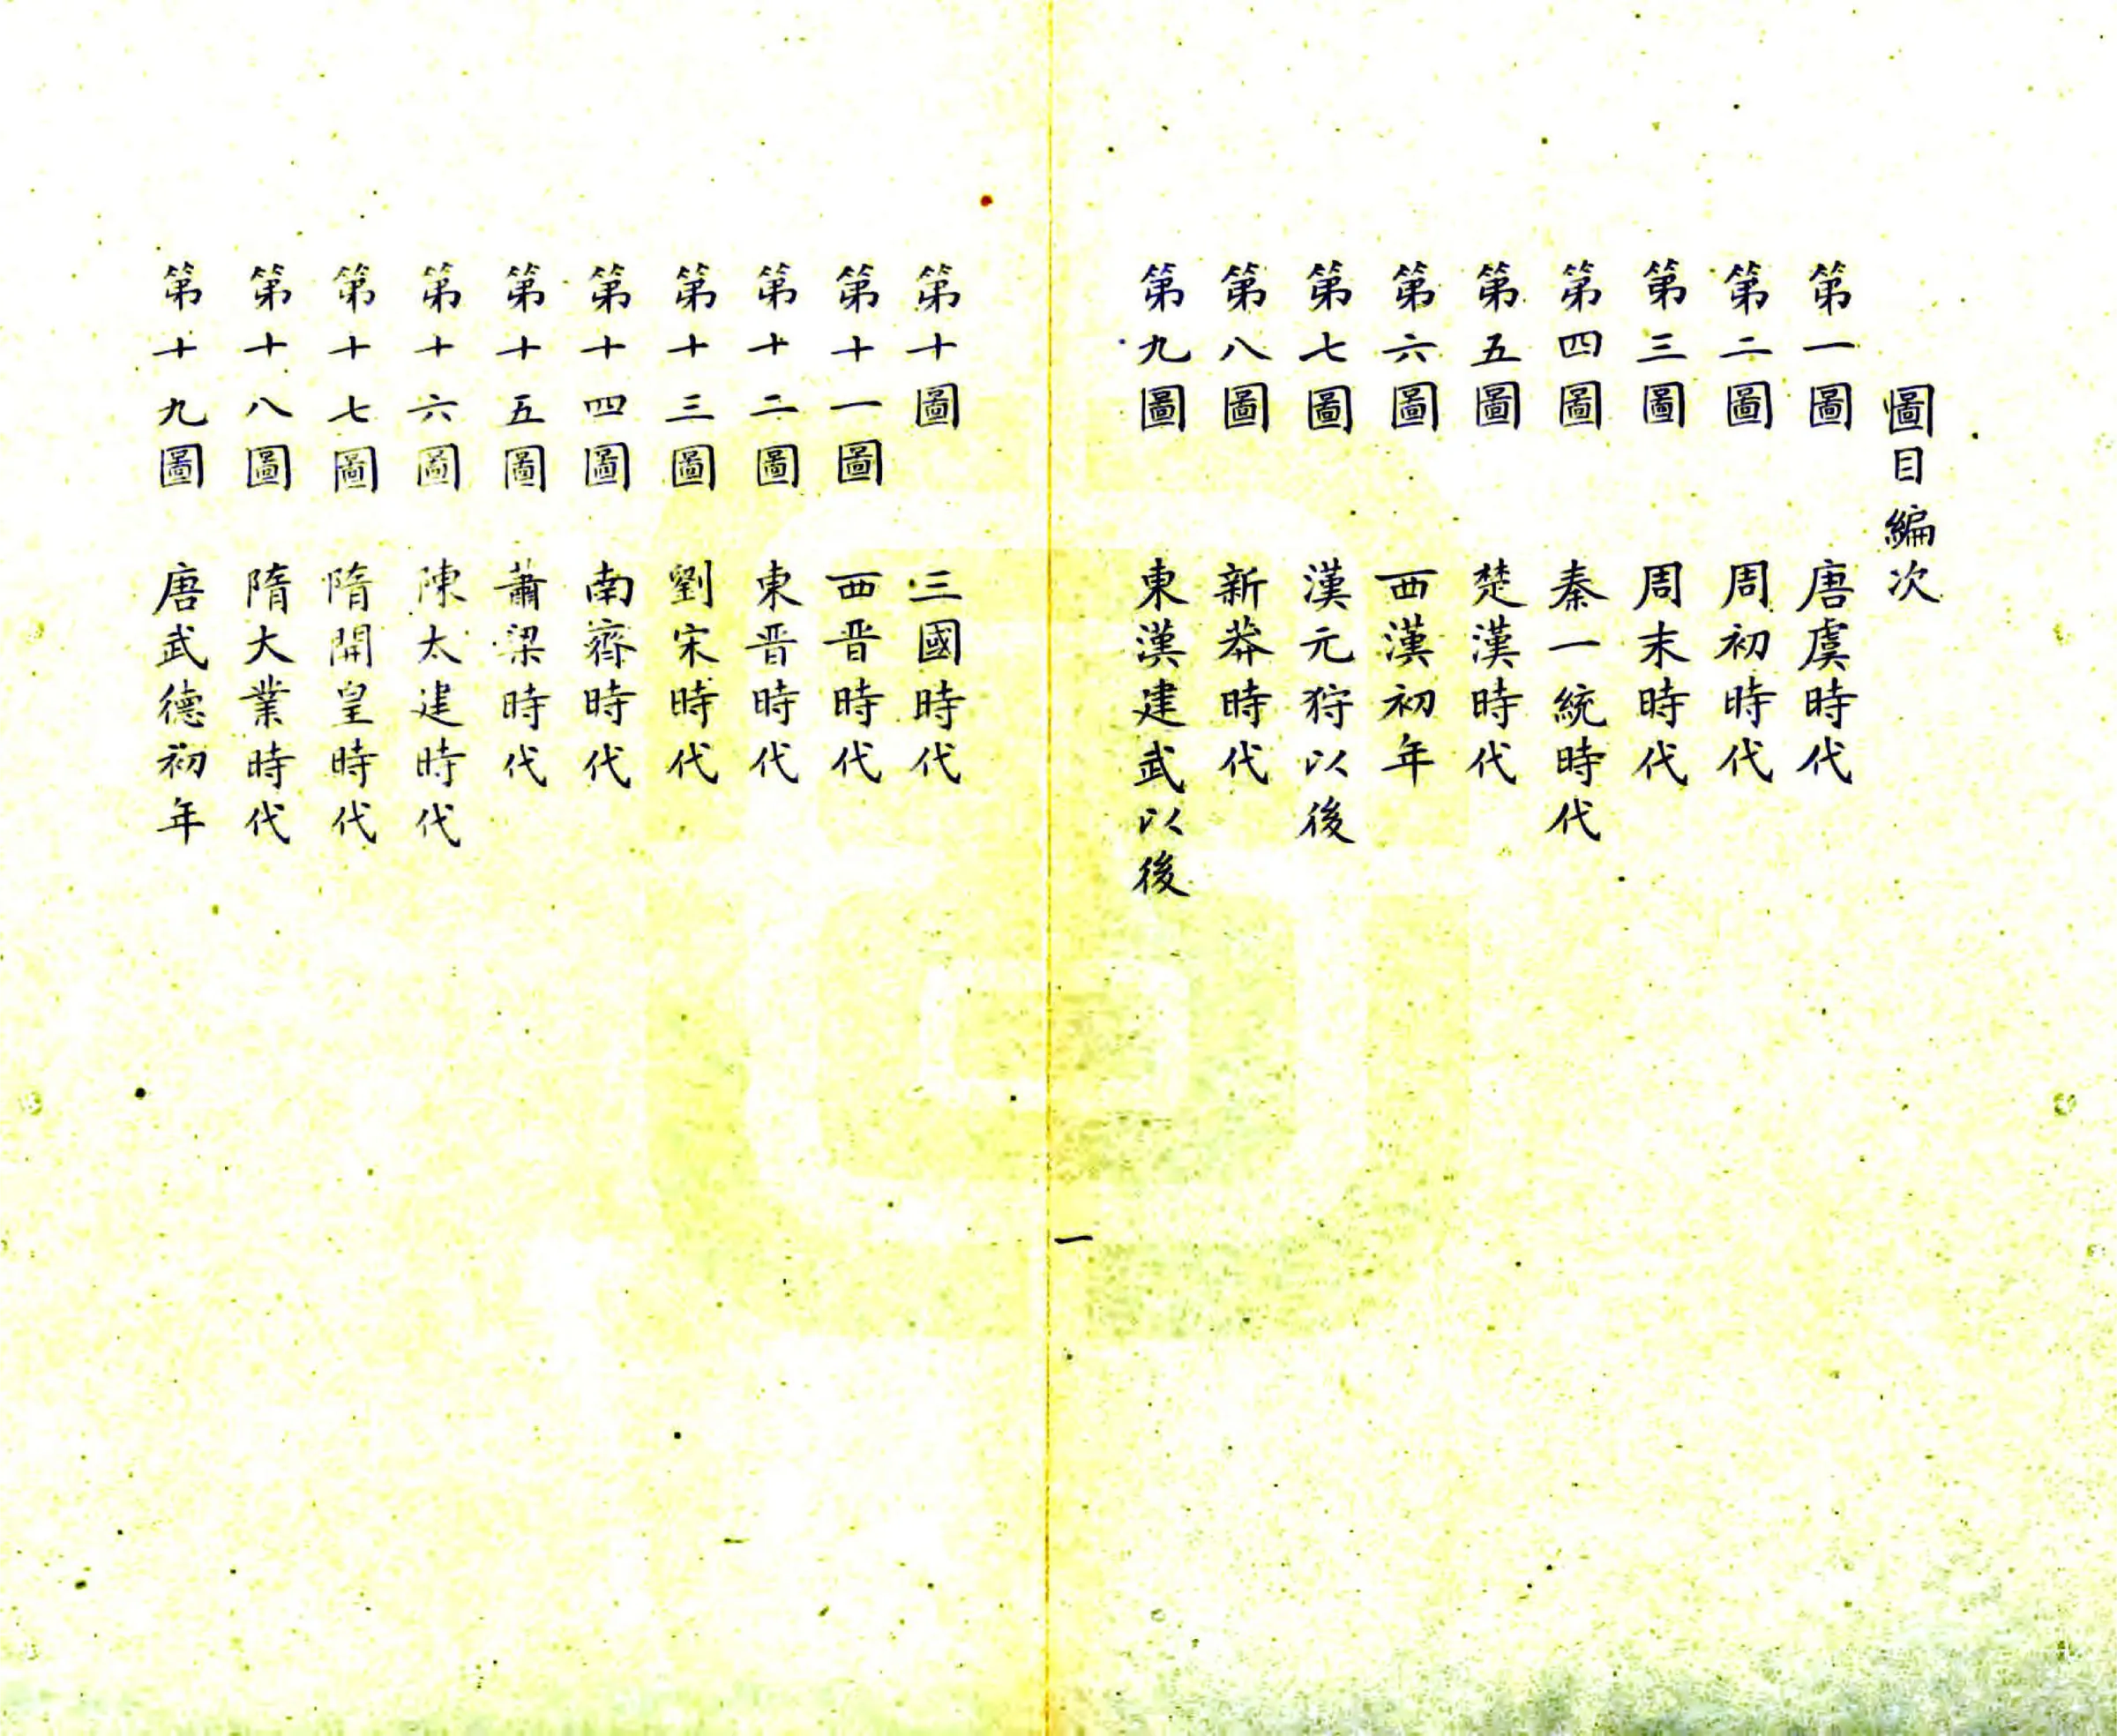 圖目編次
第一圖 唐虞時代
第二圖 周初時代
第三圖 周末時代
第四圖 秦一統時代
第五圖 楚漢時代
第六圖 西漢初年
第七圖 漢元狩以後
第八圖 新莽時代
第九圖 東漢建武以後
一
第十圖 三國時代
第十一圖 西晋時代
第十二圖 東晋時代
第十三圖 劉宋時代
第十四圖 南齊時代
第十五圖 蕭梁時代
第十六圖 陳太建時代
第十七圖 隋開皇時代
第十八圖 隋大業時代
第十九圖 唐武德初年